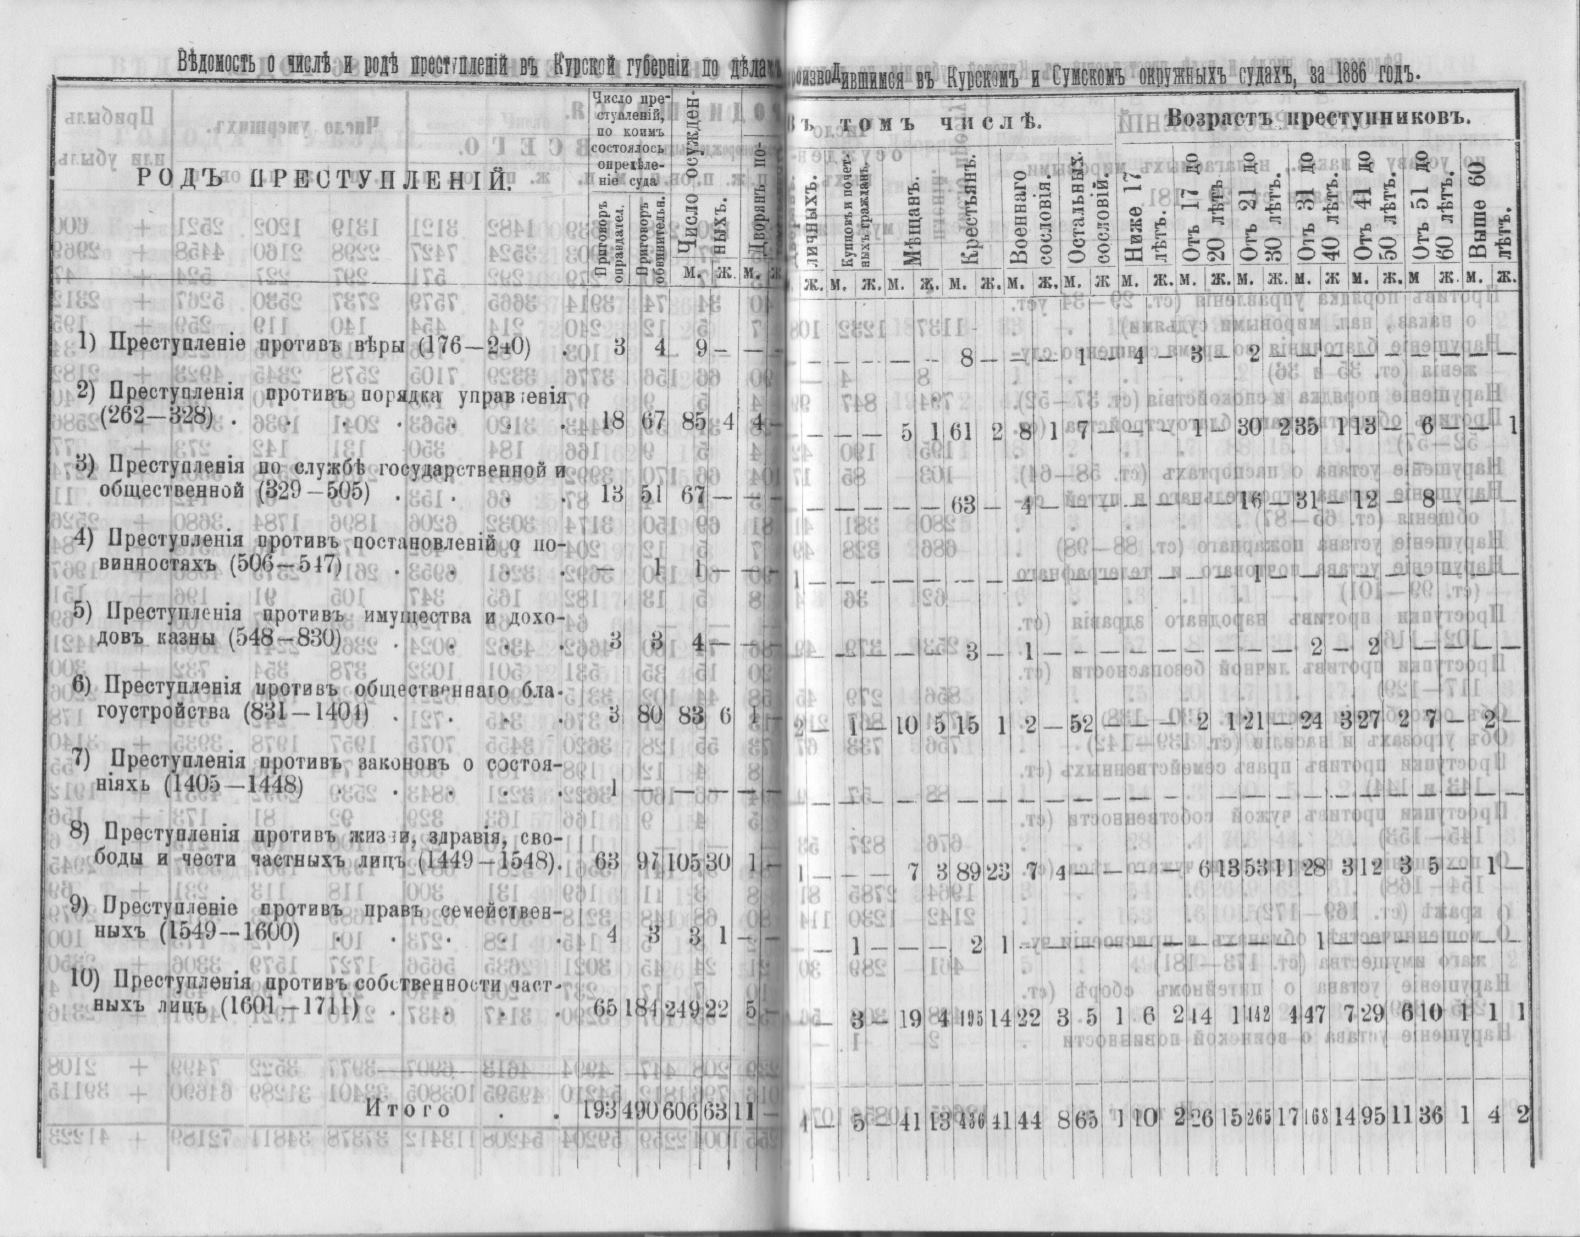 Вѣдомость о числѣ и родѣ преступленій въ Курской губерніи по дѣламъ производившимся въ Курскомъ и Сумскомъ окружныхъ судахъ, за 1886 годъ.
РОДЪ ПРЕСТУПЛЕНІЙ.
Число преступленій, по коимъ состоялось опредѣленіе суда
Приговор. оправдател.
Приговор обвинительн.
Число осужденныхъ.
м. ж.
Дворянъ
м. ж.
Въ томъ числѣ.
личныхъ.
ж.
Купцовъ и почетныхъ гражданъ.
м. ж.
Мѣщанъ.
м. ж.
Крестьянъ.
м. ж.
Военнаго сословія.
м. ж.
Остальныхъ сословій
м. ж
Возрастъ преступниковъ.
Ниже 17 лѣтъ.
м. ж.
Отъ 17 до 20 лѣтъ
м. ж.
Отъ 21 до 30 лѣтъ.
м. ж.
Отъ 31 до 40 лѣтъ.
м. ж.
Отъ 41 до 50 лѣтъ.
м. ж.
Отъ 51 до 60 лѣтъ.
м ж.
Выше 60 лѣтъ.
м. ж.
1) Преступленіе противъ вѣры (176—240) . 3 4 9 — — — — — — — — 8 — — — 1 — 4 — 3 — 2 — — — — — — — — —
2) Преступленія противъ порядка управленія
(262—328) . . . . . . . 18 67 85 4 4 — — — — 5 1 61 2 8 1 7 — — — 1 — 30 2 35 1 13 — 6 — — 1
3) Преступленія по службѣ государственной и
общественной (329—505) . . . . 13 51 67 — — — 63 — 4 — — — — — — — 16 — 31 — 12 — 8 — — —
4) Преступленія противъ постановленій о повинностяхъ (506—547) . . . . — 1 1 — — — 1 — — — — — — — — — — — — — — 1 — — — — — — — — —
5) Преступленія противъ имущества и доходовъ казны (548—830) . . . . 3 3 4 — — — — — — — — 3 — 1 — — — — — — — — — 2 — 2 — — — — —
6) Преступленія противъ общественнаго благоустройства (831—1404) . . . . 3 80 83 6 1 — 2 — 1 — 10 5 15 1 2 — 52 — — — 2 1 21 — 24 3 27 2 7 — 2 —
7) Преступленія противъ законовъ о состояніяхъ (1405—1448) . . . . . 1 — — — — — — — — — — — — — — — — — — — — — — — — — — — — — —
8) Преступленія противъ жизни, здравія, свободы и чести частныхъ лицъ (1449—1548). 63 97 105 30 1 — 1 — — — 7 3 89 23 7 4 — — — — 6 13 53 11 28 3 12 3 5 — 1 —
9) Преступленіе противъ правъ семейственныхъ (1549—1600) . . . . . 4 3 3 1 — — — — 1 — — — 2 1 — — — — — — — — — — 1 — — — — — — —
10) Преступленія противъ собственности частныхъ лицъ (1601—1711) . . . . 65 184 249 22 5 — — — 3 — 19 4 195 14 22 3 5 1 6 2 14 1 142 4 47 7 29 6 10 1 1 1
Итого . . 193 490 606 63 11 — 4 — 5 — 41 13 436 41 44 8 65 1 10 2 26 15 265 17 168 14 95 11 36 1 4 2